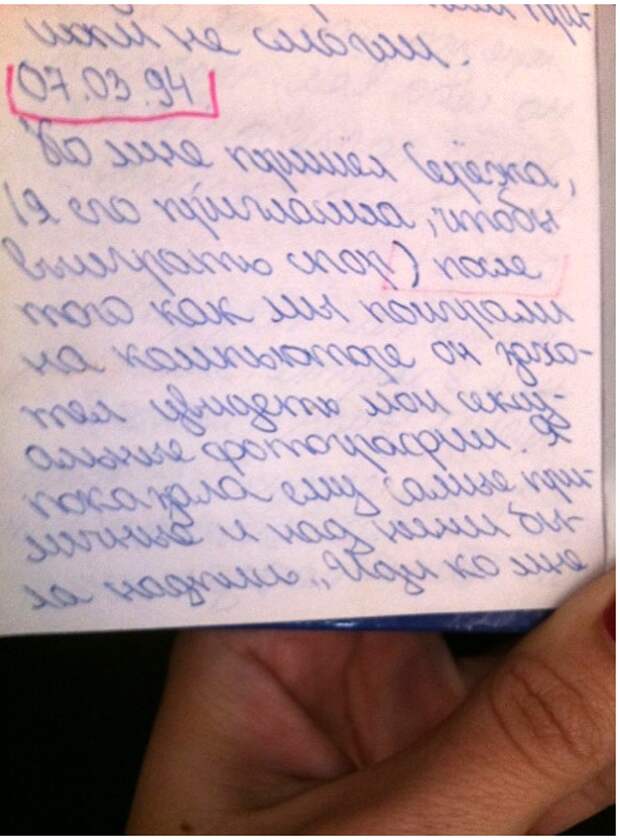 при-
не смогли.
07.03.94
Ко мне пришёл Серёжа,
(я его пригласила, чтобы
выиграть спор) после
того как мы поиграли
на компьютере он захо-
тел увидеть мои сексу-
альные фотографии. Я
показала ему самые при-
личные и над ними бы-
ла надпись „Иди ко мне